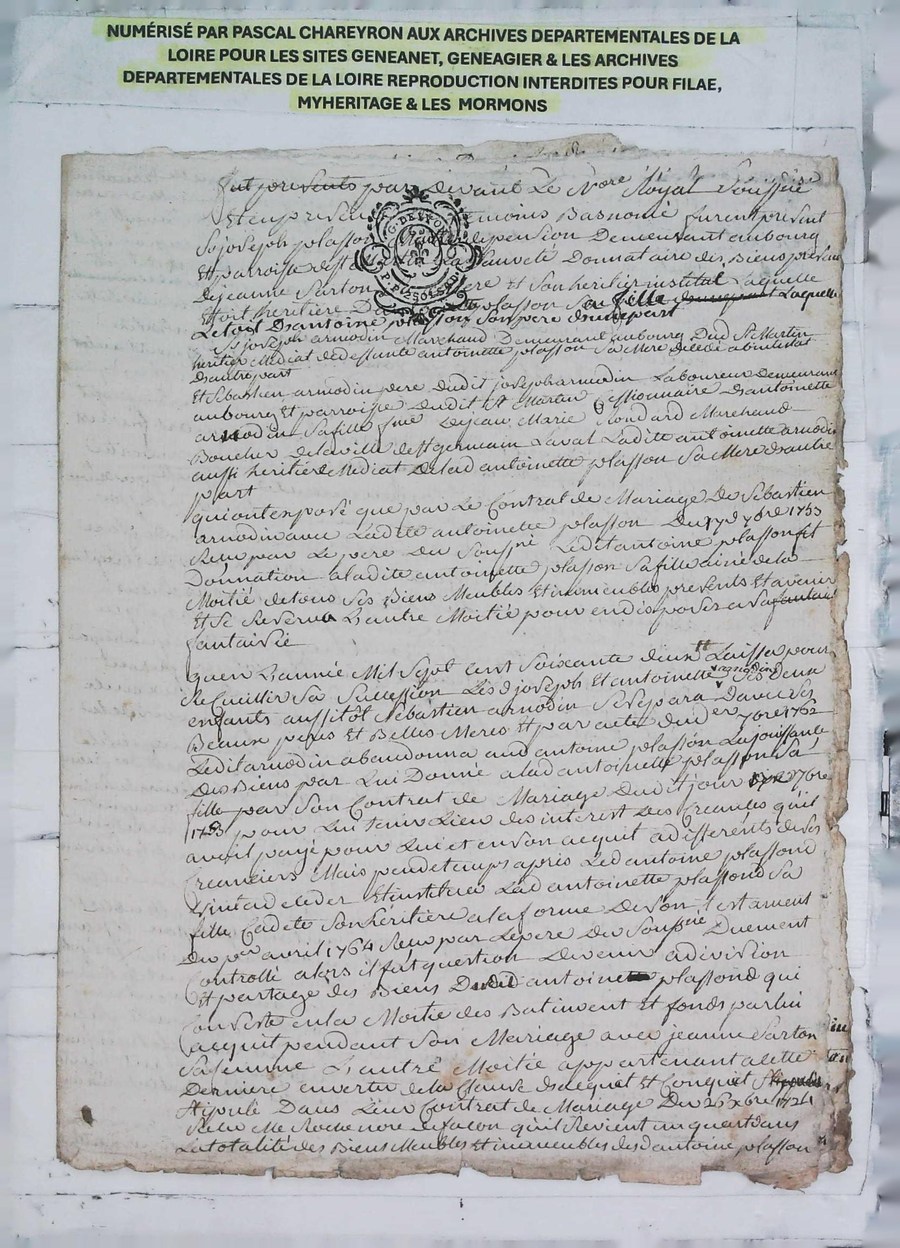 NUMÉRISÉ PAR PASCAL CHAREYRON AUX ARCHIVES DEPARTEMENTALES DE LA
LOIRE POUR LES SITES GENEANET, GENEAGIER & LES ARCHIVES
DEPARTEMENTALES DE LA LOIRE REPRODUCTION INTERDITES POUR FILAE,
MYHERITAGE & LES MORMONS
fut presents par Devant Le Nore Royal Soussné
Et en presence moins Basnomé furent present
Sr joseph plasson pension Demeurant au bourg
Et parroisse de St Donnataire des Biens
De jeanne Sarton Et Son heritier institué Laquelle
Etoit heritiere plasson Sa fille Laquelle
Letoit D'antoine plasson Son pere d'une part
Sr joseph arnodin Marchand Demeurant au bourg Dud St Martin
heritier Mediat de deffunte antoinette plasson Sa Mere decedé abintestat
D'autre part
Et Sebastien arnodin pere Dudit joseph arnodin Laboureur Demeurant
au bourg Et parroisse Dudit St Martin Cessionnaire D'antoinette
arnodin Sa fille fme De jean Marie Rondard Marchand
Boucher De la ville de St germain Laval Laditte antoinette arnodin
aussi heritiere Mediat De lad antoinette plasson Sa Mere D'autre
part
qui ont exposé que par Le Contrat de Mariage De Sebastien
arnodin avec Ladite antoinette plasson Du 17e 7bre 1753
Reçu par Le pere Du Soussné Ledit antoine plasson fit
Donnation a ladite antoinette plasson Sa fille ainé de la
Moitié de tous Ses Biens Meubles Et immeubles presents Et avenir
Et Se Reserva L'autre Moitié pour en disposer a Sa fantaisie
fantaisie
qu'en L'année Mil Sept cent Soixante deux Laissa pour
Recuillir Sa Succession Lesd joseph Et antoinette arnodin Ses deux
enfants aussitôt Sebastien arnodin Se Separa D'avec Ses
Beaux peres Et Belles Meres Et par acte du 7bre 1762
Ledit arnodin abandonna aud antoine plasson La jouissance
Des Biens par Lui Donné a lad antoinette plasson Sa
fille par Son Contrat de Mariage Dudit jour 7bre
1753 pour Lui tenir Lieu des interest Des Creances qu'il
avoit payé pour Lui et en Son acquit a differents de Ses
Creanciers Mais peu de temps après Led antoine plassond
vint a deceder Et institua Lad antoinette plassond Sa
fille Cadete Son heritiere a la forme De Son Testament
Du per avril 1764 Reçu par Le pere Du Soussné Duement
Controllé alors il fut question De venir a division
Et partage des Biens Dudit antoine plassond qui
Consiste en la Moitie des Batiment Et fonds par lui
acquit pendant Son Mariage avec jeanne Sarton
Sa femme L'autre Moitié appartenant a cette
Derniere en vertu de la Clause D'acquet Et Conquet
Stipulé Dans Leur Contrat de Mariage Du 26 xbre 1724
Reçu Me Roche nore de façon qu'il Revient un quart dans
La totalité des Biens Meubles Et immeubles dud antoine plasson